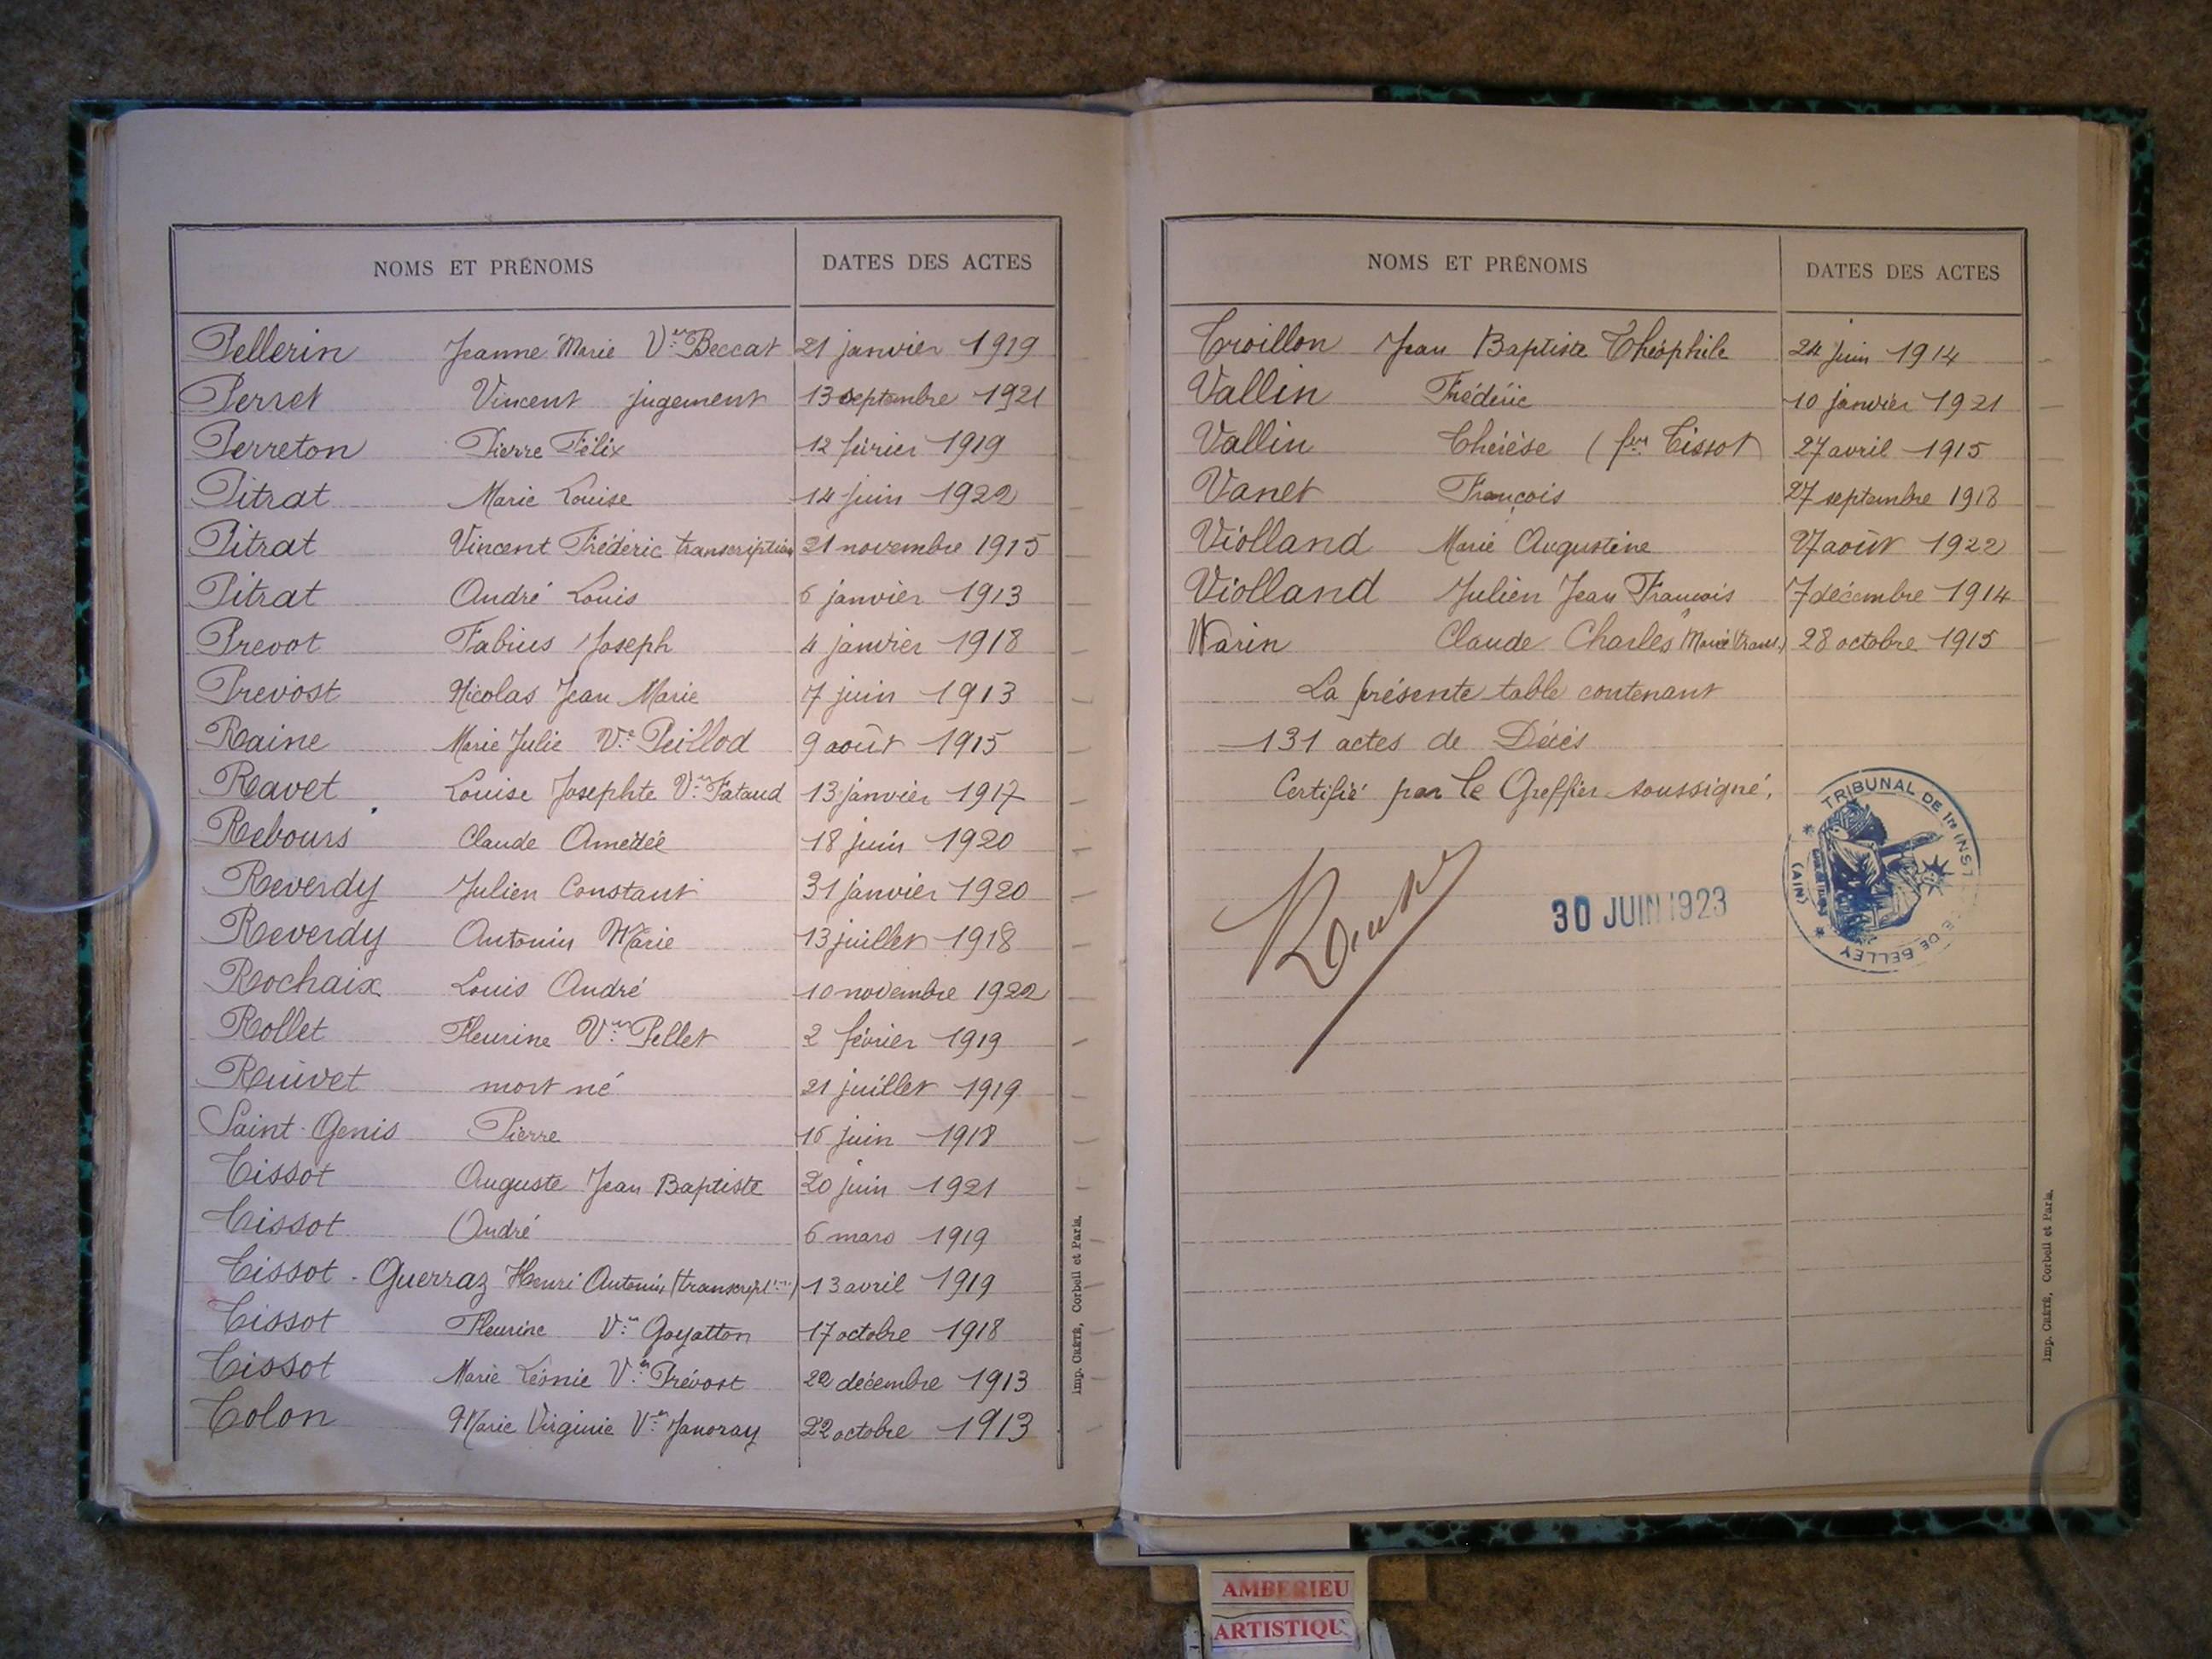 NOMS ET PRÉNOMS DATES DES ACTES
Pellerin Jeanne Marie Vve Beccat 21 janvier 1919
Perret Vincent jugement 13 septembre 1921
Perreton Pierre Félix 12 février 1919
Pitrat Marie Louise 14 juin 1922
Pitrat Vincent Frédéric transcription 21 novembre 1915
Pitrat André Louis 6 janvier 1913
Prevot Fabius Joseph 4 janvier 1918
Prevost Nicolas Jean Marie 7 juin 1913
Raine Marie Julie Ve Peillod 9 août 1915
Ravet Louise Josephte Vve Fataud 13 janvier 1917
Rebours Claude Amédée 18 juin 1920
Reverdy Julien Constant 31 janvier 1920
Reverdy Antonin Marie 13 juillet 1918
Rochaix Louis André 10 novembre 1922
Rollet Fleurine Vve Pellet 2 février 1919
Ruivet mort né 21 juillet 1919
Saint-Genis Pierre 16 juin 1918
Tissot Auguste Jean Baptiste 20 juin 1921
Tissot André 6 mars 1919
Tissot-Guerraz Henri Antonin (transcript.on) 13 avril 1919
Tissot Fleurine Vve Goyatton 17 octobre 1918
Tissot Marie Léonie Vve Prévost 22 décembre 1913
Tolon Marie Virginie Vve Janoray 22 octobre 1913
Imp. CRÉTÉ, Corbeil et Paris.
NOMS ET PRÉNOMS DATES DES ACTES
Troillon Jean Baptiste Théophile 24 juin 1914
Vallin Frédéric 10 janvier 1921
Vallin Thérèse (fme Tissot) 27 avril 1915
Vanet François 27 septembre 1918
Violland Marie Augustine 27 août 1922
Violland Julien Jean François 7 décembre 1914
Warin Claude Charles Marie (trans.) 28 octobre 1915
La présente table contenant
131 actes de Décès
Certifié par le Greffier soussigné.
30 JUIN 1923
TRIBUNAL DE 1re INST E DE BELLEY
(AIN)
Imp. CRÉTÉ, Corbeil et Paris.
AMBERIEU
ARTISTIQU